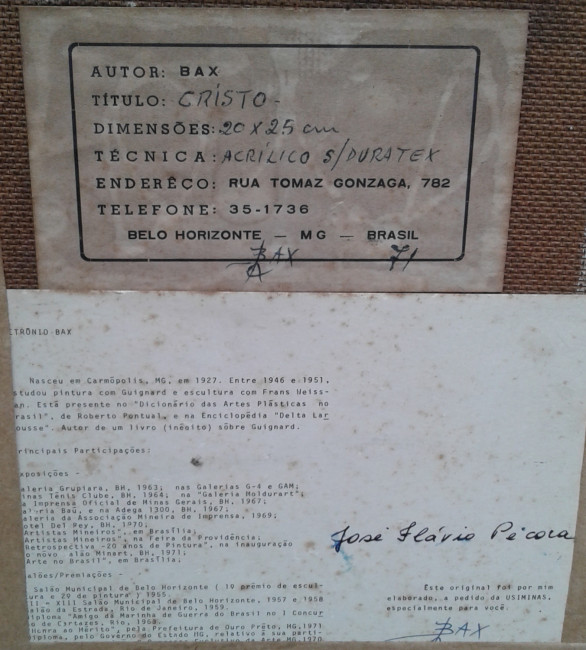 AUTOR: BAX
TÍTULO: CRISTO -
DIMENSÕES: 20 X 25 cm
TÉCNICA: ACRÍLICO S/DURATEX
ENDERÊÇO: RUA TOMAZ GONZAGA, 782
TELEFONE: 35-1736
BELO HORIZONTE — MG — BRASIL
BAX 71
ETRÔNIO BAX
Nasceu em Carmópolis, MG, em 1927. Entre 1946 e 1951,
studou pintura com Guignard e escultura com Frans Weiss-
an. Está presente no "Dicionário das Artes Plásticas no
rasil", de Roberto Pontual, e na Enciclopédia "Delta Lar
ousse". Autor de um livro (inêdito) sôbre Guignard.
rincipais Participações:
xposições -
aleria Grupiara, BH, 1963; nas Galerias G-4 e GAM;
inas Tênis Clube, BH, 1964; na "Galeria Moldurart";
a Imprensa Oficial de Minas Gerais, BH, 1967;
aleria Baú, e na Adega 1300, BH, 1967;
aleria da Associação Mineira de Imprensa, 1969;
otel Del Rey, BH, 1970;
Artistas Mineiros", em Brasília;
Artistas Mineiros", na Feira da Providência;
Retrospectiva -20 anos de Pintura", na inauguração
o novo salão Minart, BH, 1971;
Arte no Brasil", em Brasília;
José Flávio Pécora
alões/Premiações -
Salão Municipal de Belo Horizonte (1º prêmio de escul-
ura e 2º de pintura) 1955.
II - XIII Salão Municipal de Belo Horizonte, 1957 e 1958
alão da Estrada, Rio de Janeiro, 1959.
iploma "Amigo da Marinha de Guerra do Brasil no I Concur
o de Cartazes, Rio, 1968.
Honra ao Mérito", pela Prefeitura de Ouro Prêto, MG, 1971
iploma, pelo Governo do Estado MG, relativo à sua parti-
Arte MG, 1970
Êste original foi por mim
elaborado, a pedido da USIMINAS,
especialmente para você.
BAX